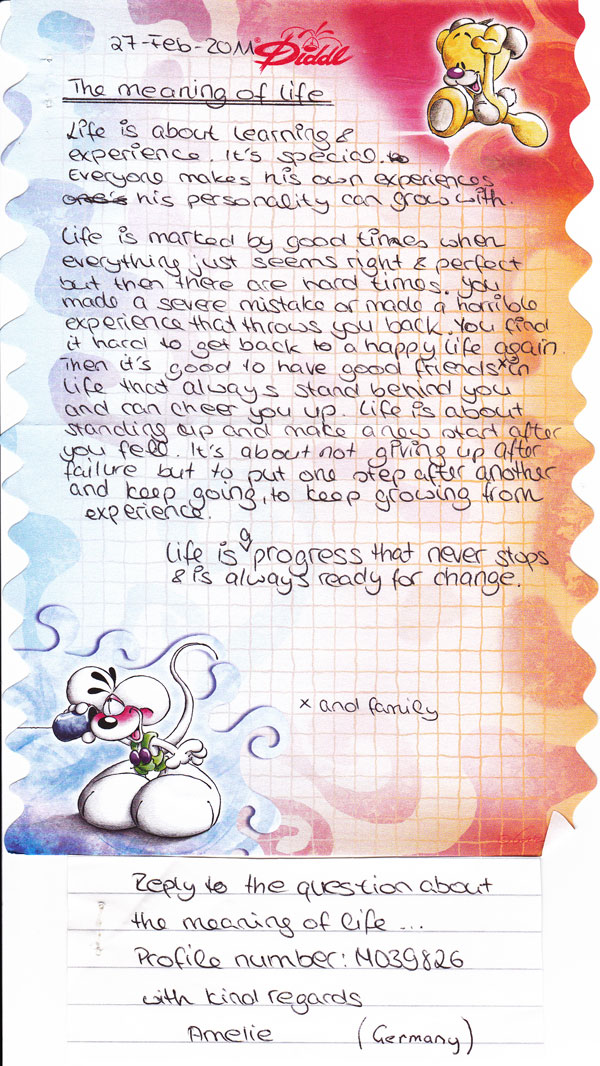 27-Feb-2011
Diddl
The meaning of life
Life is about learning &
experience. It's special.
Everyone makes his own experiences
his personality can grow with.
Life is marked by good times when
everything just seems right & perfect
but then there are hard times. You
made a severe mistake or made a horrible
experience that throws you back. You find
it hard to get back to a happy life again.
Then it's good to have good friends x in
life that always stand behind you
and can cheer you up. Life is about
standing up and make a new start after
you fell. It's about not giving up after
failure but to put one step after another
and keep going, to keep growing from
experience.
Life is a progress that never stops
& is always ready for change.
x and family
Reply to the question about
the meaning of life ...
Profile number: M039826
with kind regards
Amelie (Germany)